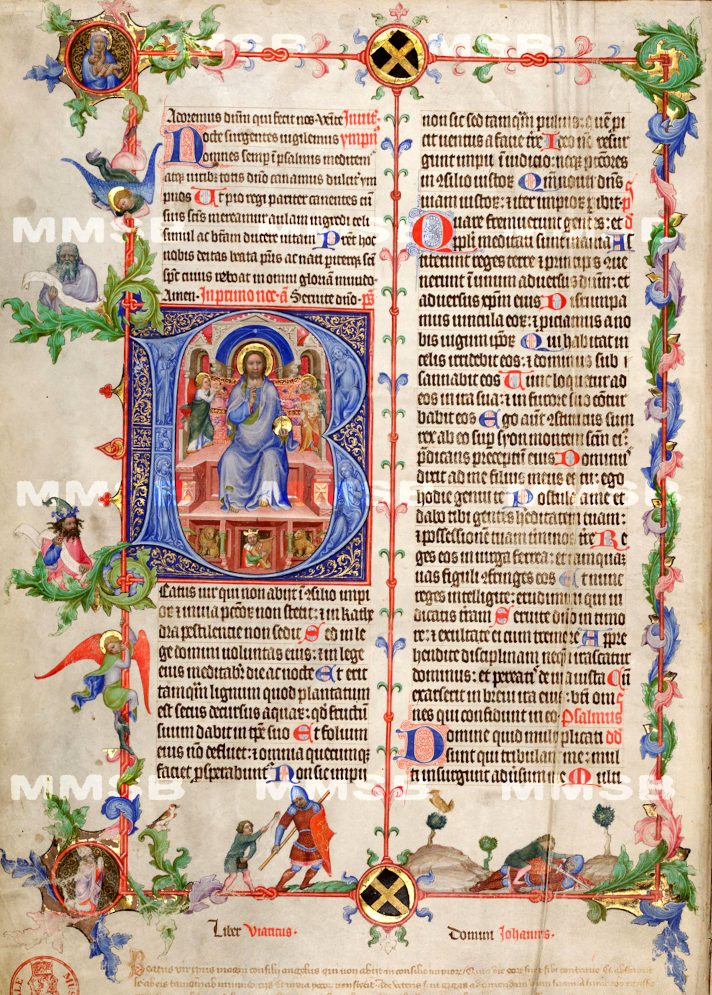 Adoremus dnm qui fecit nos Venite Invit
Nocte surgentes vigilemus ympn
omnes semp in psalmis meditem
atqz viribz totis dno canamus dulciter ym
pnos Ut pio regi pariter canentes cu
suis scis mereamur aulam ingredi celi
simul ac btam ducere vitam Prest hoc
nobis deitas beata pris ac nati
spc cuius in omni gloria mundo
Amen In primo noc a Servite dno ps
Beatus vir qui non abiit in consilio impi
or et in via pctorz non stetit: et in kathe
dra pestilencie non sedit Sed in le
ge domini voluntas eius: et in lege
eius meditabz die ac nocte Et erit
tamqm lignum quod plantatum
est secus decursus aquarz: qd fructu
suum dabit in tpre suo Et folium
eius no defluet: et omnia quecumqz
faciet psperabunt Non sic impii
non sic sed tamqm pulvis: quem pi
cit ventus a facie tre Ideo no resur
gunt impii in iudicio: neqz pctores
in consilio iustorz Qm novit dns
viam iustorz: et iter impiorz pibit ps
Quare fremuerunt gentes: et dd
ppli meditati sunt inania As
titerunt reges terre et principes co
venerunt in unum adversus dnm: et
adversus xpm eius Dirumpa
mus vincula eorz: et piciamus a no
bis iugum ipsorz Qui habitat in
celis irridebit eos: et dominus sub
sannabit eos Tunc loquetur ad
eos in ira sua: et in furore suo contur
babit eos Ego aut constitutus sum
rex ab eo sup syon montem scm ei:
pdicans preceptum eius Dominus
dixit ad me filius meus es tu: ego
hodie genui te Postula a me et
dabo tibi gentes hereditatem tuam:
et possessione tuam terminos tre Re
ges eos in virga ferrea: et tamquam
vas figuli confringes eos Et nunc
reges intelligite: erudimini qui iu
dicatis tram Servite dno in timo
re: et exultate ei cum tremore Appre
hendite disciplinam neqn irascatur
dominus: et pereatis de via iusta Cu
exarserit in brevi ira eius: bti om
nes qui confidunt in eo Psalmus
Domine quid multiplicati dd
sunt qui tribulant me: mul
ti insurgunt adversum me Multi
Liber Viaticus.
Domini Johannis.
MMSB